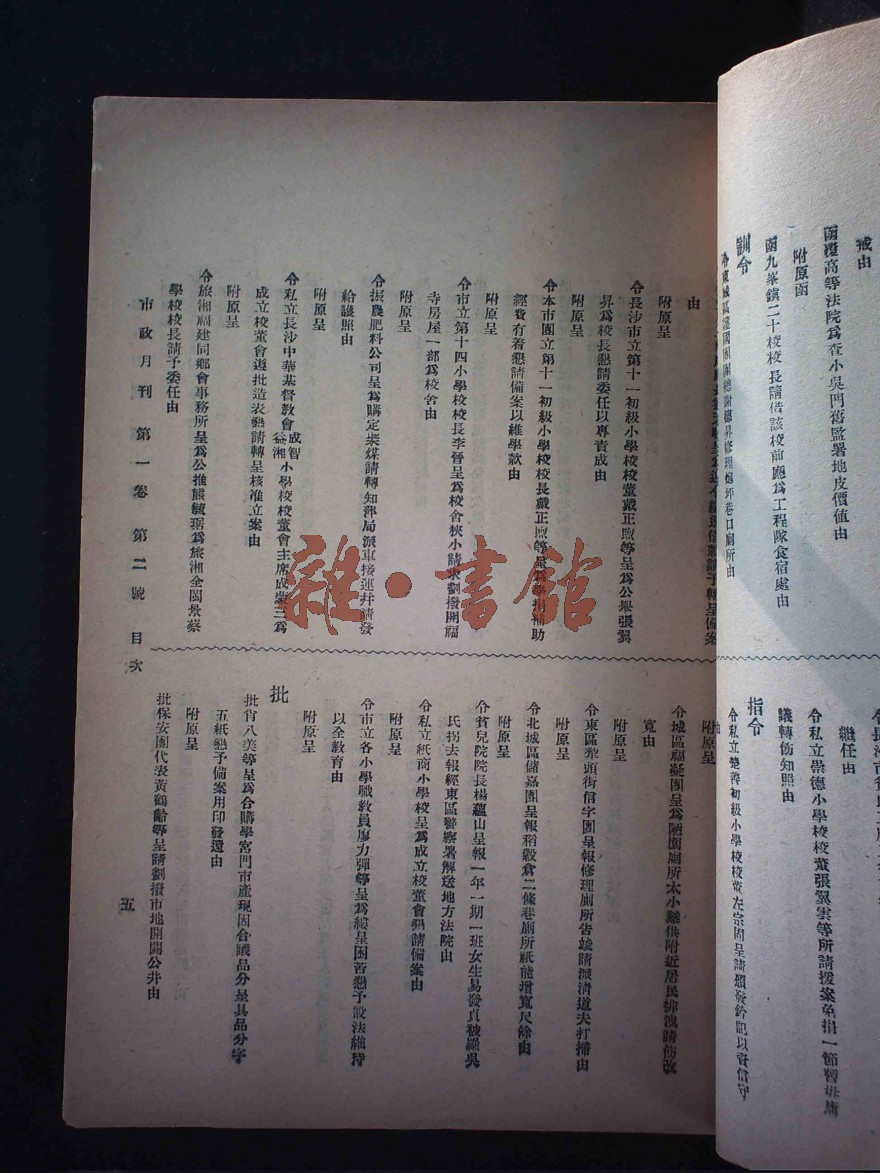 戒由
函覆高等法院爲查小吳門舊監署地皮價值由
附原函
函九峯鎮二十校校長請借該校前廳爲工程隊食宿處由
訓令
巷口廁所由
繼任由
令私立崇德小學校校董張翼雲等所請援案免捐一節暫毋庸
議轉飭知照由
指令
令私立楚善初級小學校校董左宗固呈請頒發鈐記以資信守
由
附原呈
令長沙市立第十一初級小學校校董戴正煦等呈爲公舉張翼
昇爲校長懇請委任以專責成由
附原呈
令本市團立第十一初級小學校校長戴正煦等呈爲學捐補助
經費有着懇請備案以維學款由
附原呈
令市立第十四小學校校長李晉呈爲校舍狹小請求劃撥開福
寺房屋一部爲校舍由
附原呈
令振農肥料公司呈爲購定柴煤請轉知萍局派車接運幷請發
給護照由
附原呈
令私立長沙中華基督教會成智益湘小學校校董會主席成棠三爲
成立校董會遵批造表懇請轉呈核准立案由
附原呈
令旅湘福建同鄉會事務所呈爲公推熊毓琚爲旅湘全閩景蔡
學校校長請予委任由
附原呈
令城區福凝團呈爲陋園廁所太小難供附近居民排洩請飭改
寬由
附原呈
令東區犂頭街信字團呈報修理廁所告竣請派清道夫打掃由
附原呈
令北城區儲嘉團呈報稻穀倉二條巷廁所祇能增寬尺餘由
附原呈
令貧兒院院長楊蘊山呈報一年一期一班女生易發貞被羅吳
氏拐去報經東區警察署解送地方法院由
令私立紙商小學校呈爲成立校董會懇請備案由
附原呈
令市立各小學職教員廖力彈等呈爲縷呈困苦懇予設法維持
以全教育由
附原呈
批
批肖八美等呈爲合購學宮門市產現因合議品分呈具品分字
五紙懇予備案用印發還由
附原呈
批保安團代表黃鶴齡等呈請劃撥市地開闢公井由
市政月刊 第一卷 第二號 目次
五
雜·書館